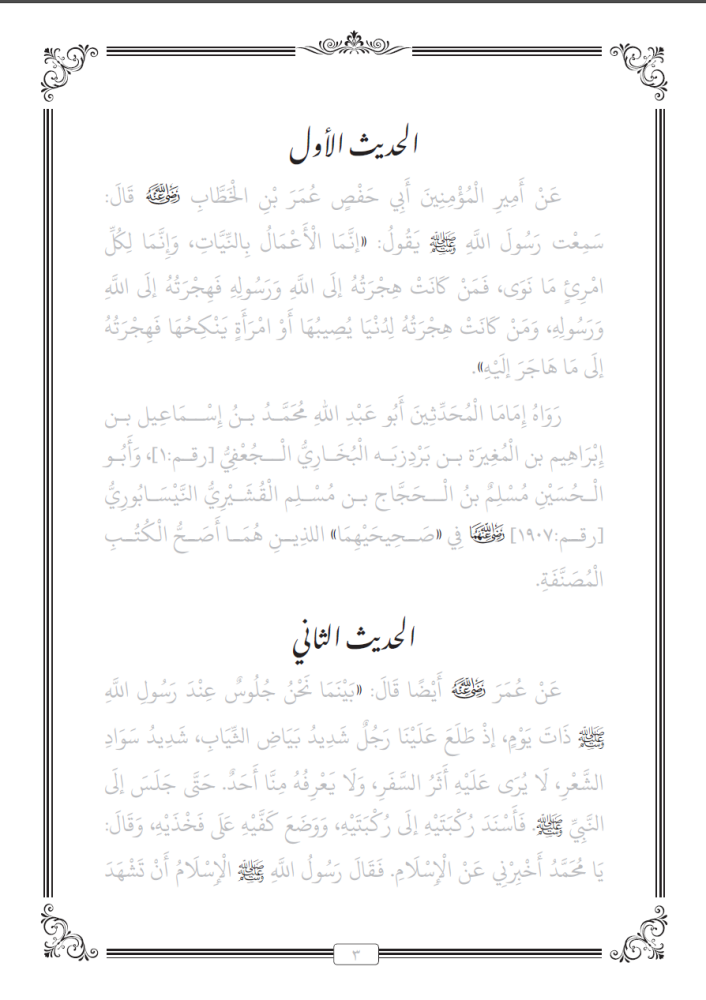 الحديث الأول
عَنْ أَمِيرِ الْمُؤْمِنِينَ أَبِي حَفْصٍ عُمَرَ بْنِ الْخَطَّابِ رَضِيَ اللَّهُ عَنْهُ قَالَ:
سَمِعْت رَسُولَ اللَّهِ ﷺ يَقُولُ: «إنَّمَا الْأَعْمَالُ بِالنِّيَّاتِ، وَإِنَّمَا لِكُلِّ
امْرِئٍ مَا نَوَى، فَمَنْ كَانَتْ هِجْرَتُهُ إلَى اللَّهِ وَرَسُولِهِ فَهِجْرَتُهُ إلَى اللَّهِ
وَرَسُولِهِ، وَمَنْ كَانَتْ هِجْرَتُهُ لِدُنْيَا يُصِيبُهَا أَوْ امْرَأَةٍ يَنْكِحُهَا فَهِجْرَتُهُ
إلَى مَا هَاجَرَ إلَيْهِ».
رَوَاهُ إِمَامَا الْمُحَدِّثِينَ أَبُو عَبْدِ اللهِ مُحَمَّدُ بنُ إِسْمَاعِيل بن
إِبْرَاهِيم بن الْمُغِيرَة بن بَرْدِزبَه الْبُخَارِيُّ الْجُعْفِيُّ [رقم:١]، وَأَبُو
الْحُسَيْنِ مُسْلِمٌ بنُ الْحَجَّاج بن مُسْلِم الْقُشَيْرِيُّ النَّيْسَابُورِيُّ
[رقم:١٩٠٧] رَضِيَ اللَّهُ عَنْهُمَا فِي «صَحِيحَيْهِمَا» اللذِينِ هُمَا أَصَحُّ الْكُتُبِ
الْمُصَنَّفَةِ.
الحديث الثاني
عَنْ عُمَرَ رَضِيَ اللَّهُ عَنْهُ أَيْضًا قَالَ: «بَيْنَمَا نَحْنُ جُلُوسٌ عِنْدَ رَسُولِ اللَّهِ
ﷺ ذَاتَ يَوْمٍ، إذْ طَلَعَ عَلَيْنَا رَجُلٌ شَدِيدُ بَيَاضِ الثِّيَابِ، شَدِيدُ سَوَادِ
الشَّعْرِ، لَا يُرَى عَلَيْهِ أَثَرُ السَّفَرِ، وَلَا يَعْرِفُهُ مِنَّا أَحَدٌ. حَتَّى جَلَسَ إلَى
النَّبِيِّ ﷺ. فَأَسْنَدَ رُكْبَتَيْهِ إلَى رُكْبَتَيْهِ، وَوَضَعَ كَفَّيْهِ عَلَى فَخْذَيْهِ، وَقَالَ:
يَا مُحَمَّدُ أَخْبِرْنِي عَنْ الْإِسْلَامِ. فَقَالَ رَسُولُ اللَّهِ ﷺ الْإِسْلَامُ أَنْ تَشْهَدَ
٣